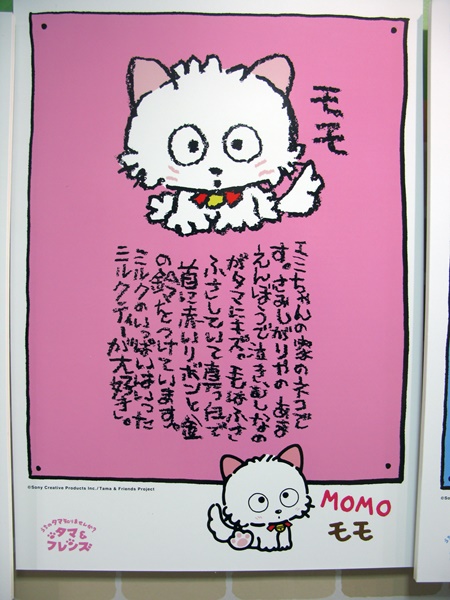 モモ
エミちゃんの家のネコで
す。さみしがりやの あま
えんぼうで泣きむしなの
がタマにキズ。毛はふさ
ふさしていて真っ白で
首に赤いリボンと金
の鈴をつけています。
ミルクのいっぱいはいった
ミルクティーが大好き。
©Sony Creative Products Inc./Tama & Friends Project
うちのタマ知りませんか?
タマ&
フレンズ
MOMO
モモ